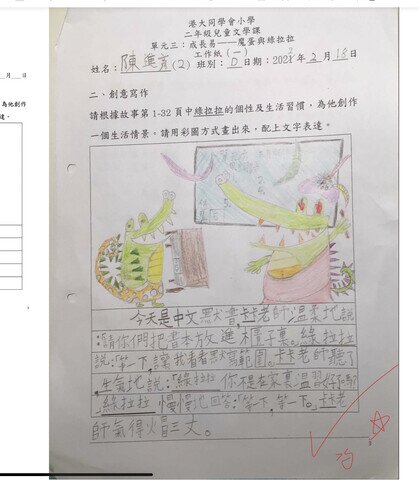 港大同學會小學
二年級兒童文學課
單元三:成長易——魔蛋與綠拉拉
工作紙(一)
姓名: 陳雋言(2) 班別: D 日期: 2021年2月18日
二、創意寫作
請根據故事第1-32頁中綠拉拉的個性及生活習慣,為他創作
一個生活情景。請用彩圖方式畫出來,配上文字表達。
今天是中文默書,卡卡老師溫柔地說
:「請你們把書本放進櫃子裏。」綠拉拉
說:「等一下,讓我看看默寫範圍。」卡卡老師聽了
生氣地說:「綠拉拉,你不是在家裏溫習好了嗎?
」綠拉拉慢慢地回答:「等一下,等一下。」卡老
師氣得冒三丈。
月 日
為他創作
達。